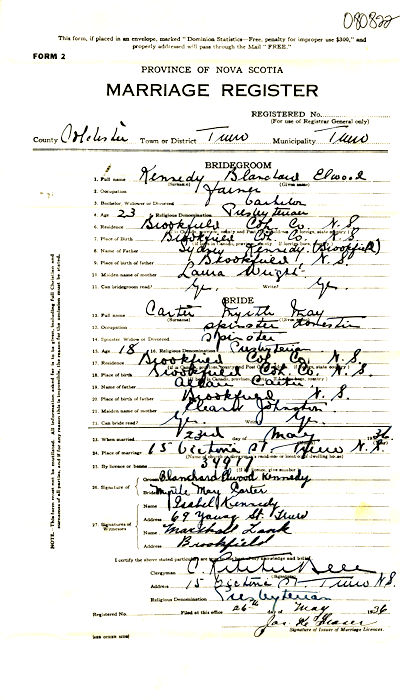 080822
This form, if placed in an envelope, marked "Dominion Statistics—Free, penalty for improper use $300," and
properly addressed will pass through the Mail "FREE."
FORM 2
PROVINCE OF NOVA SCOTIA
MARRIAGE REGISTER
REGISTERED No.
(For use of Registrar General only)
County Colchester Town or District Truro Municipality Truro
BRIDEGROOM
1. Full name Kennedy Blanchard Elwood
(Surname) (Given name)
2. Occupation Farmer
3. Bachelor, Widower or Divorced Bachelor
4. Age 23 5. Religious Denomination Presbyterian
6. Residence Brookfield Col. Co. N. S.
7. Place of Birth Brookfield Col. Co. N. S.
8. Name of Father Sydney Kennedy (Brookfield)
9. Place of birth of father Brookfield N. S.
10. Maiden name of mother Laura Wright
11. Can bridegroom read? Yes. Write? Yes.
BRIDE
12. Full name Carter Myrtle May
(Surname) (Given name)
13. Occupation spinster domestic
14. Spinster, Widow or Divorced Spinster
15. Age 18 16. Religious Denomination Presbyterian
17. Residence Brookfield Col. Co. N. S.
18. Place of birth Brookfield Col. Co. N. S.
19. Name of father Carter
20. Place of birth of father Brookfield N. S.
21. Maiden name of mother Johnston
22. Can bride read? Yes. Write? Yes.
23. When married 23rd day of May 1936
24. Place of marriage 15 Victoria St. Truro N. S.
25. By license or banns
Groom Blanchard Elwood Kennedy
26. Signature of
Bride Myrtle May Carter
Name Isabel Kennedy
Address 69 Young St. Truro
27. Signatures of Witnesses
Name Marshall
Address Brookfield
I certify the above stated particulars are true to the best of my knowledge and belief.
Clergyman
(Signature)
Address 15 Victoria St. Truro N.S.
Religious Denomination Presbyterian
Registered No. Filed at this office 26th day of May 1936
Signature of Issuer of Marriage Licenses.
[SEE OTHER SIDE]